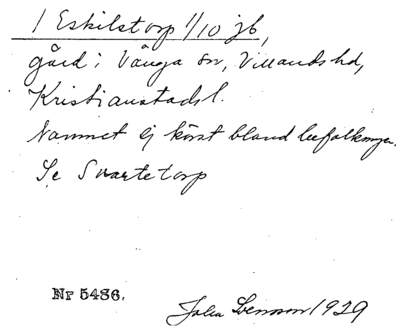 1 Eskilstorp 1/10 jb,
gård i Vånga sn, Villands hd,
Kristianstads l.
Namnet ej känt bland befolkningen.
Se Svartetorp
Nr 5486.
1929